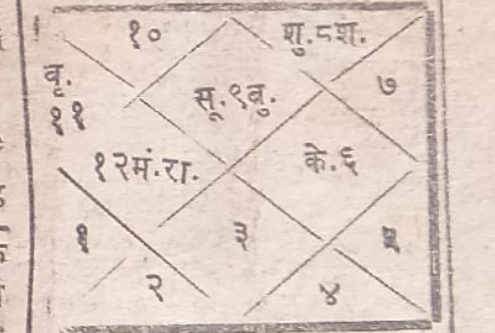 १०
शु.८श.
वृ.
११
सू.९बु.
७
१२मं.रा.
के.६
१
३
२
४